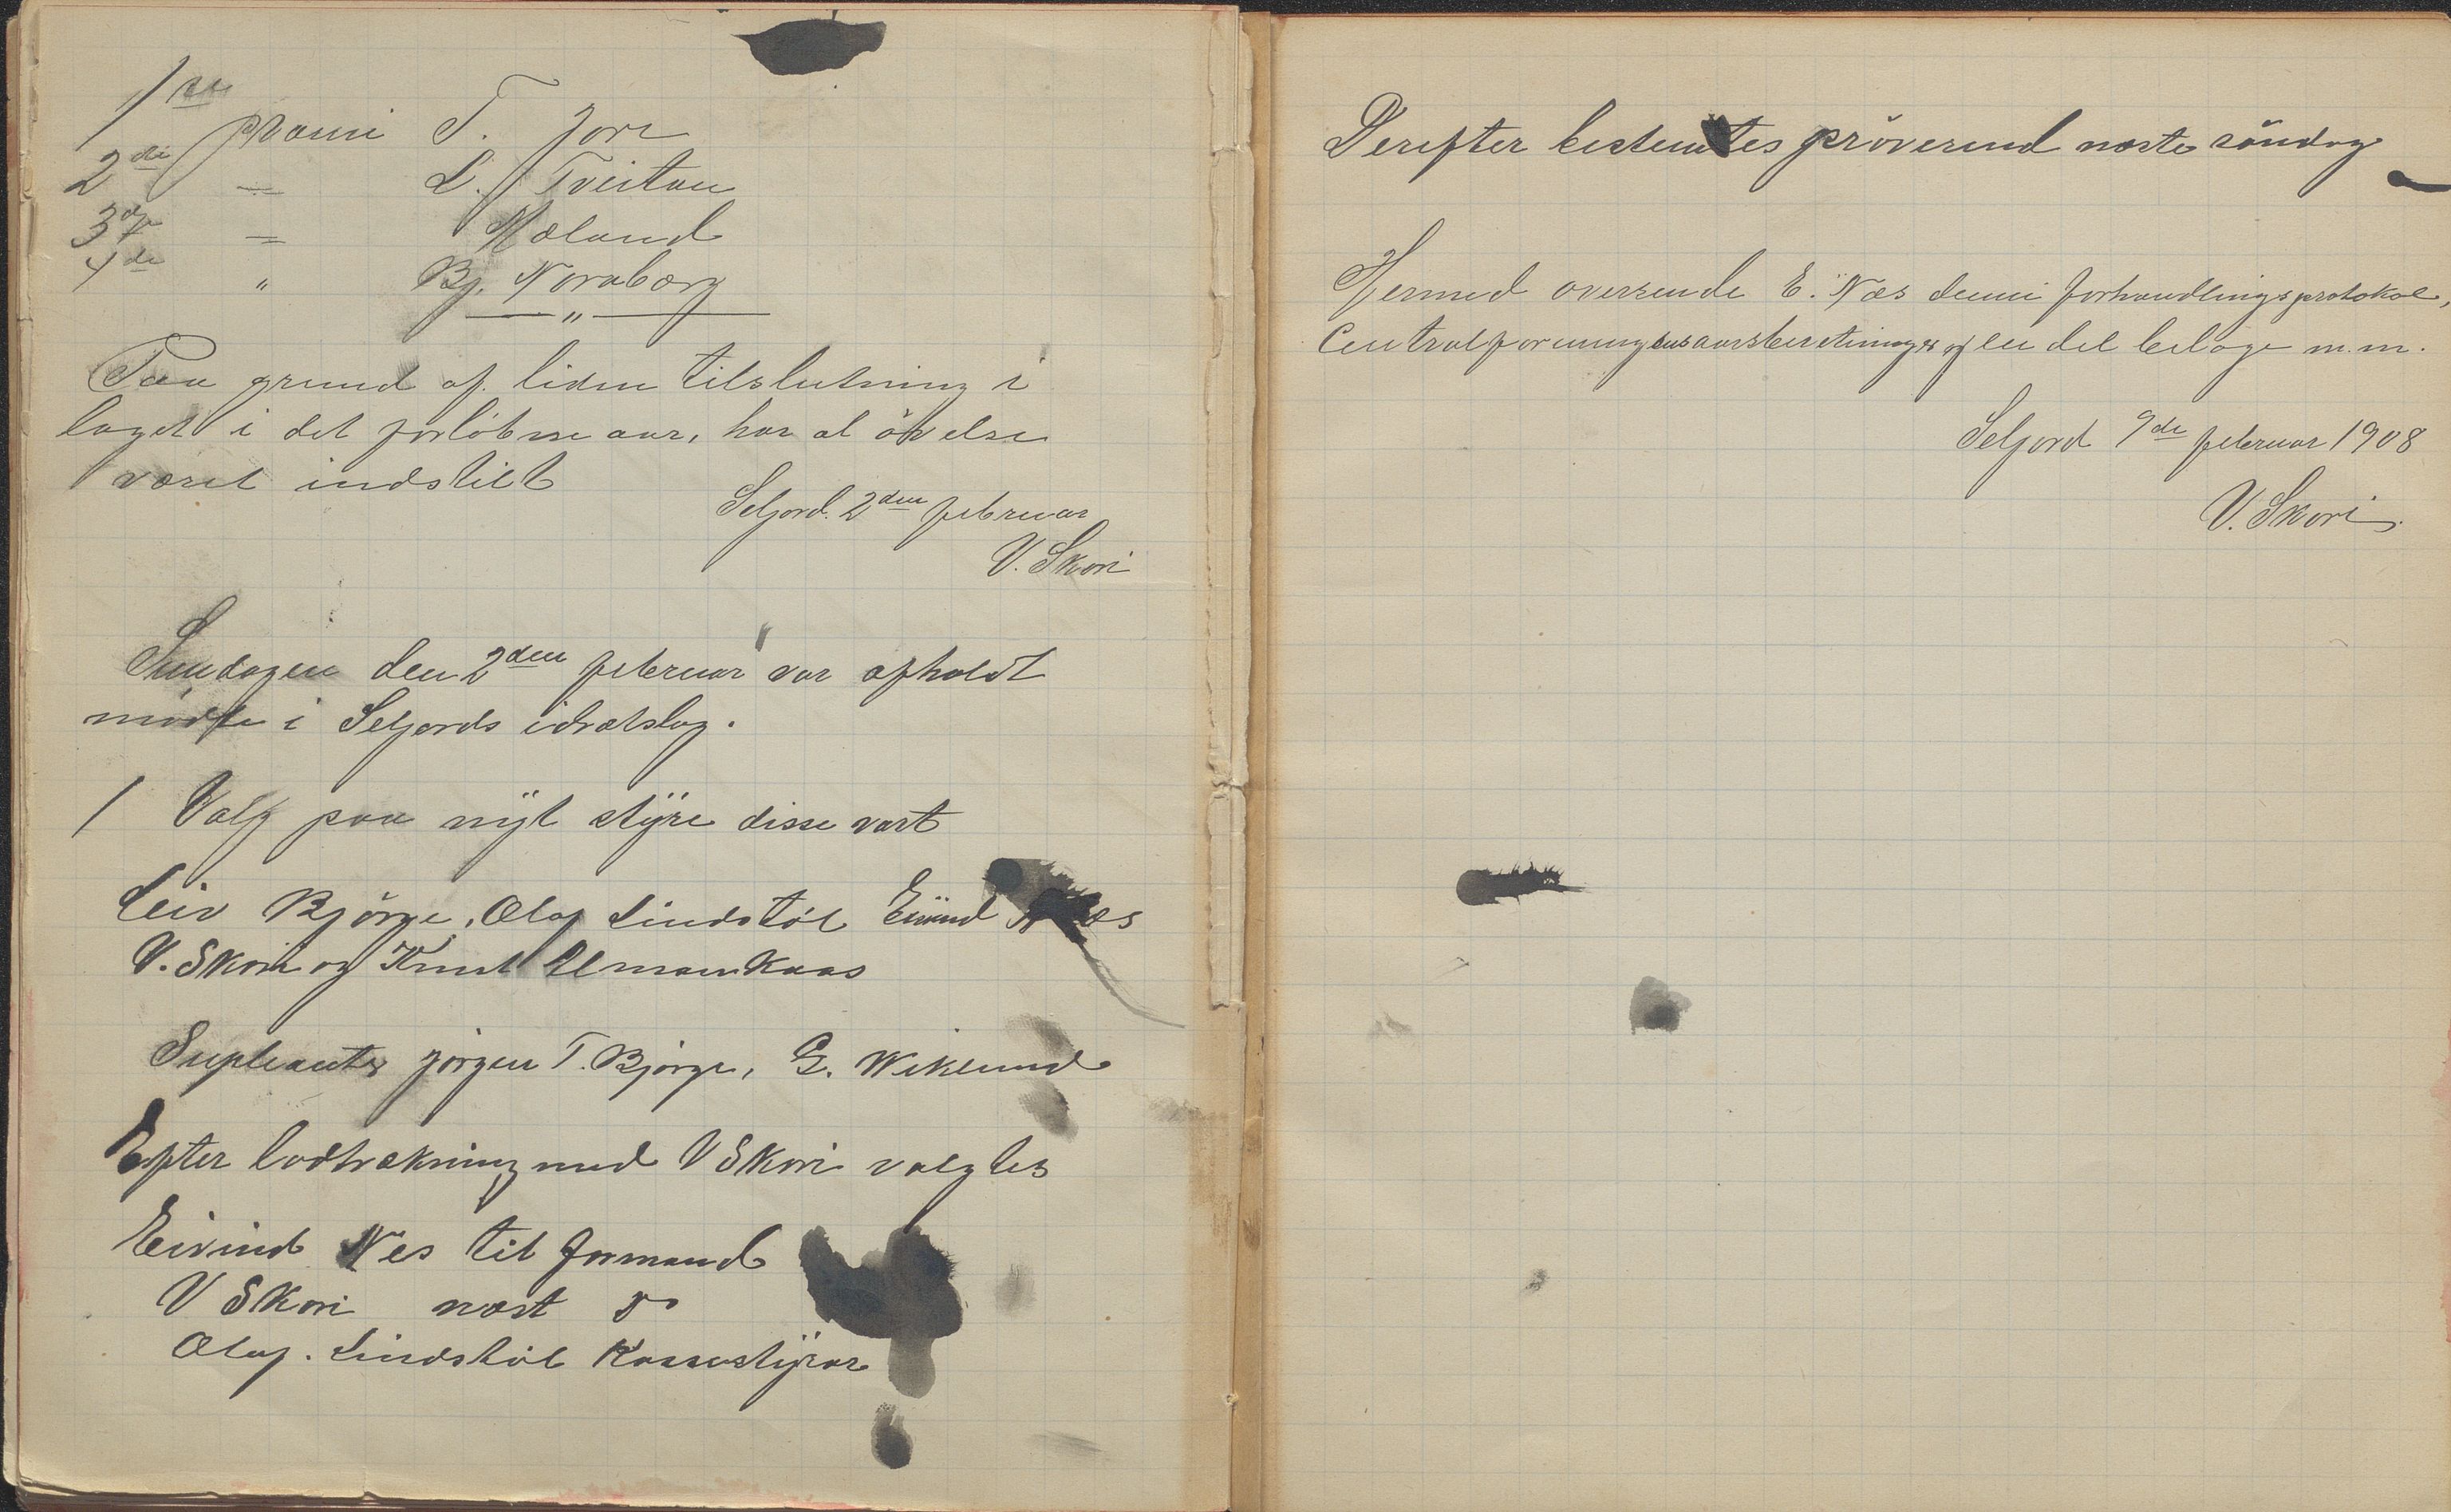 1ste præmi T. Jore
2de — L. Tveitan
3de = Mæland
4de " Bj. Noraberg
— " —
Paa grund af liden tilslutning i
laget i det forløbne aar, har al øvelse
været indstilt
Seljord. 2den februar
V. Skori
Sundagen den 2den februar var afholdt
møde i Seljords idrætslag.
1 Valg paa nÿt stÿre disse vart
Leiv Bjørge, Olaf Lindstøl Eivind Næs
V. Skori og Knut Utmankaas
Supleanter Jørgen T. Bjørge, G. Wiklund
Efter lodtrækning med V Skori valgtes
Eivind Nes til formand
V Skori næst do
Olaf. Lindstøl Kassestÿrar
Derefter bestemtes prøverend næste søndag
Hermed oversende E. Næs denne forhandlingsprotokol,
Centralforeningens aarsberetninger og en del bilage m.m.
Seljord 9de februar 1908
V. Skori.